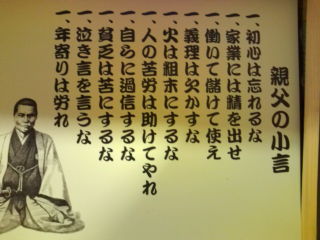 親父の小言
一、初心は忘れるな
一、家業には精を出せ
一、働いて儲けて使え
一、義理は欠かすな
一、火は粗末にするな
一、人の苦労は助けてやれ
一、自らに過信するな
一、貧乏は苦にするな
一、泣き言を言うな
一、年寄りは労れ